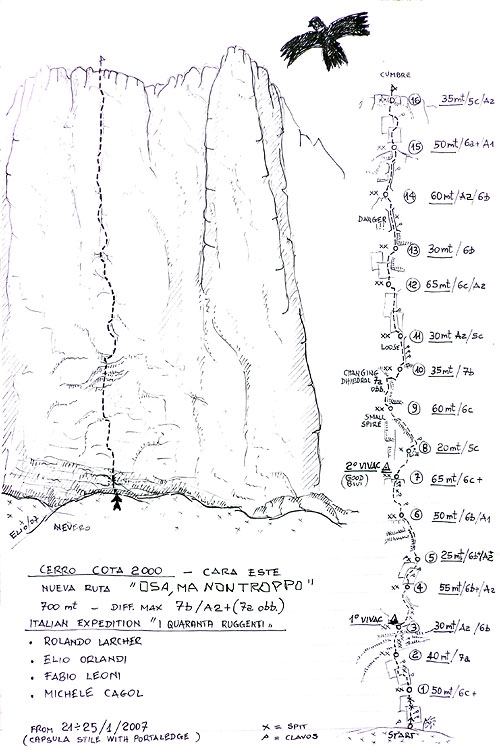 CUMBRE
16 35mt/5c/A2
15 50mt/6a+ A1
14 60mt/A2/6b
DANGER!!!
13 30mt/6b
12 65mt/6c/A2
11 30mt A2/5c
LOOSE
10 35mt/7b
CHANGING
DIHEDRAL 7a
obb.
9 60mt/6c
SMALL
SPIRE
8 20mt/5c
2º VIVAC
(GOOD)
BIVI
7 65mt/6c+
6 50mt/6b/A1
5 25mt/6b+/A2
4 55mt/6b+/A2
1º VIVAC
3 30mt/A2/6b
2 40mt/7a
1 50mt/6c+
START
Elio/07
NEVERO
CERRO COTA 2000 – CARA ESTE
NUEVA RUTA "OSA, MA NON TROPPO"
700 mt – DIFF. MAX 7b/A2+(7a obb.)
ITALIAN EXPEDITION "I QUARANTA RUGGENTI"
• ROLANDO LARCHER
• ELIO ORLANDI
• FABIO LEONI
• MICHELE CAGOL
FROM 21÷25/1/2007
(CAPSULA STILE WITH PORTALEDGE)
X = SPIT
= CLAVOS